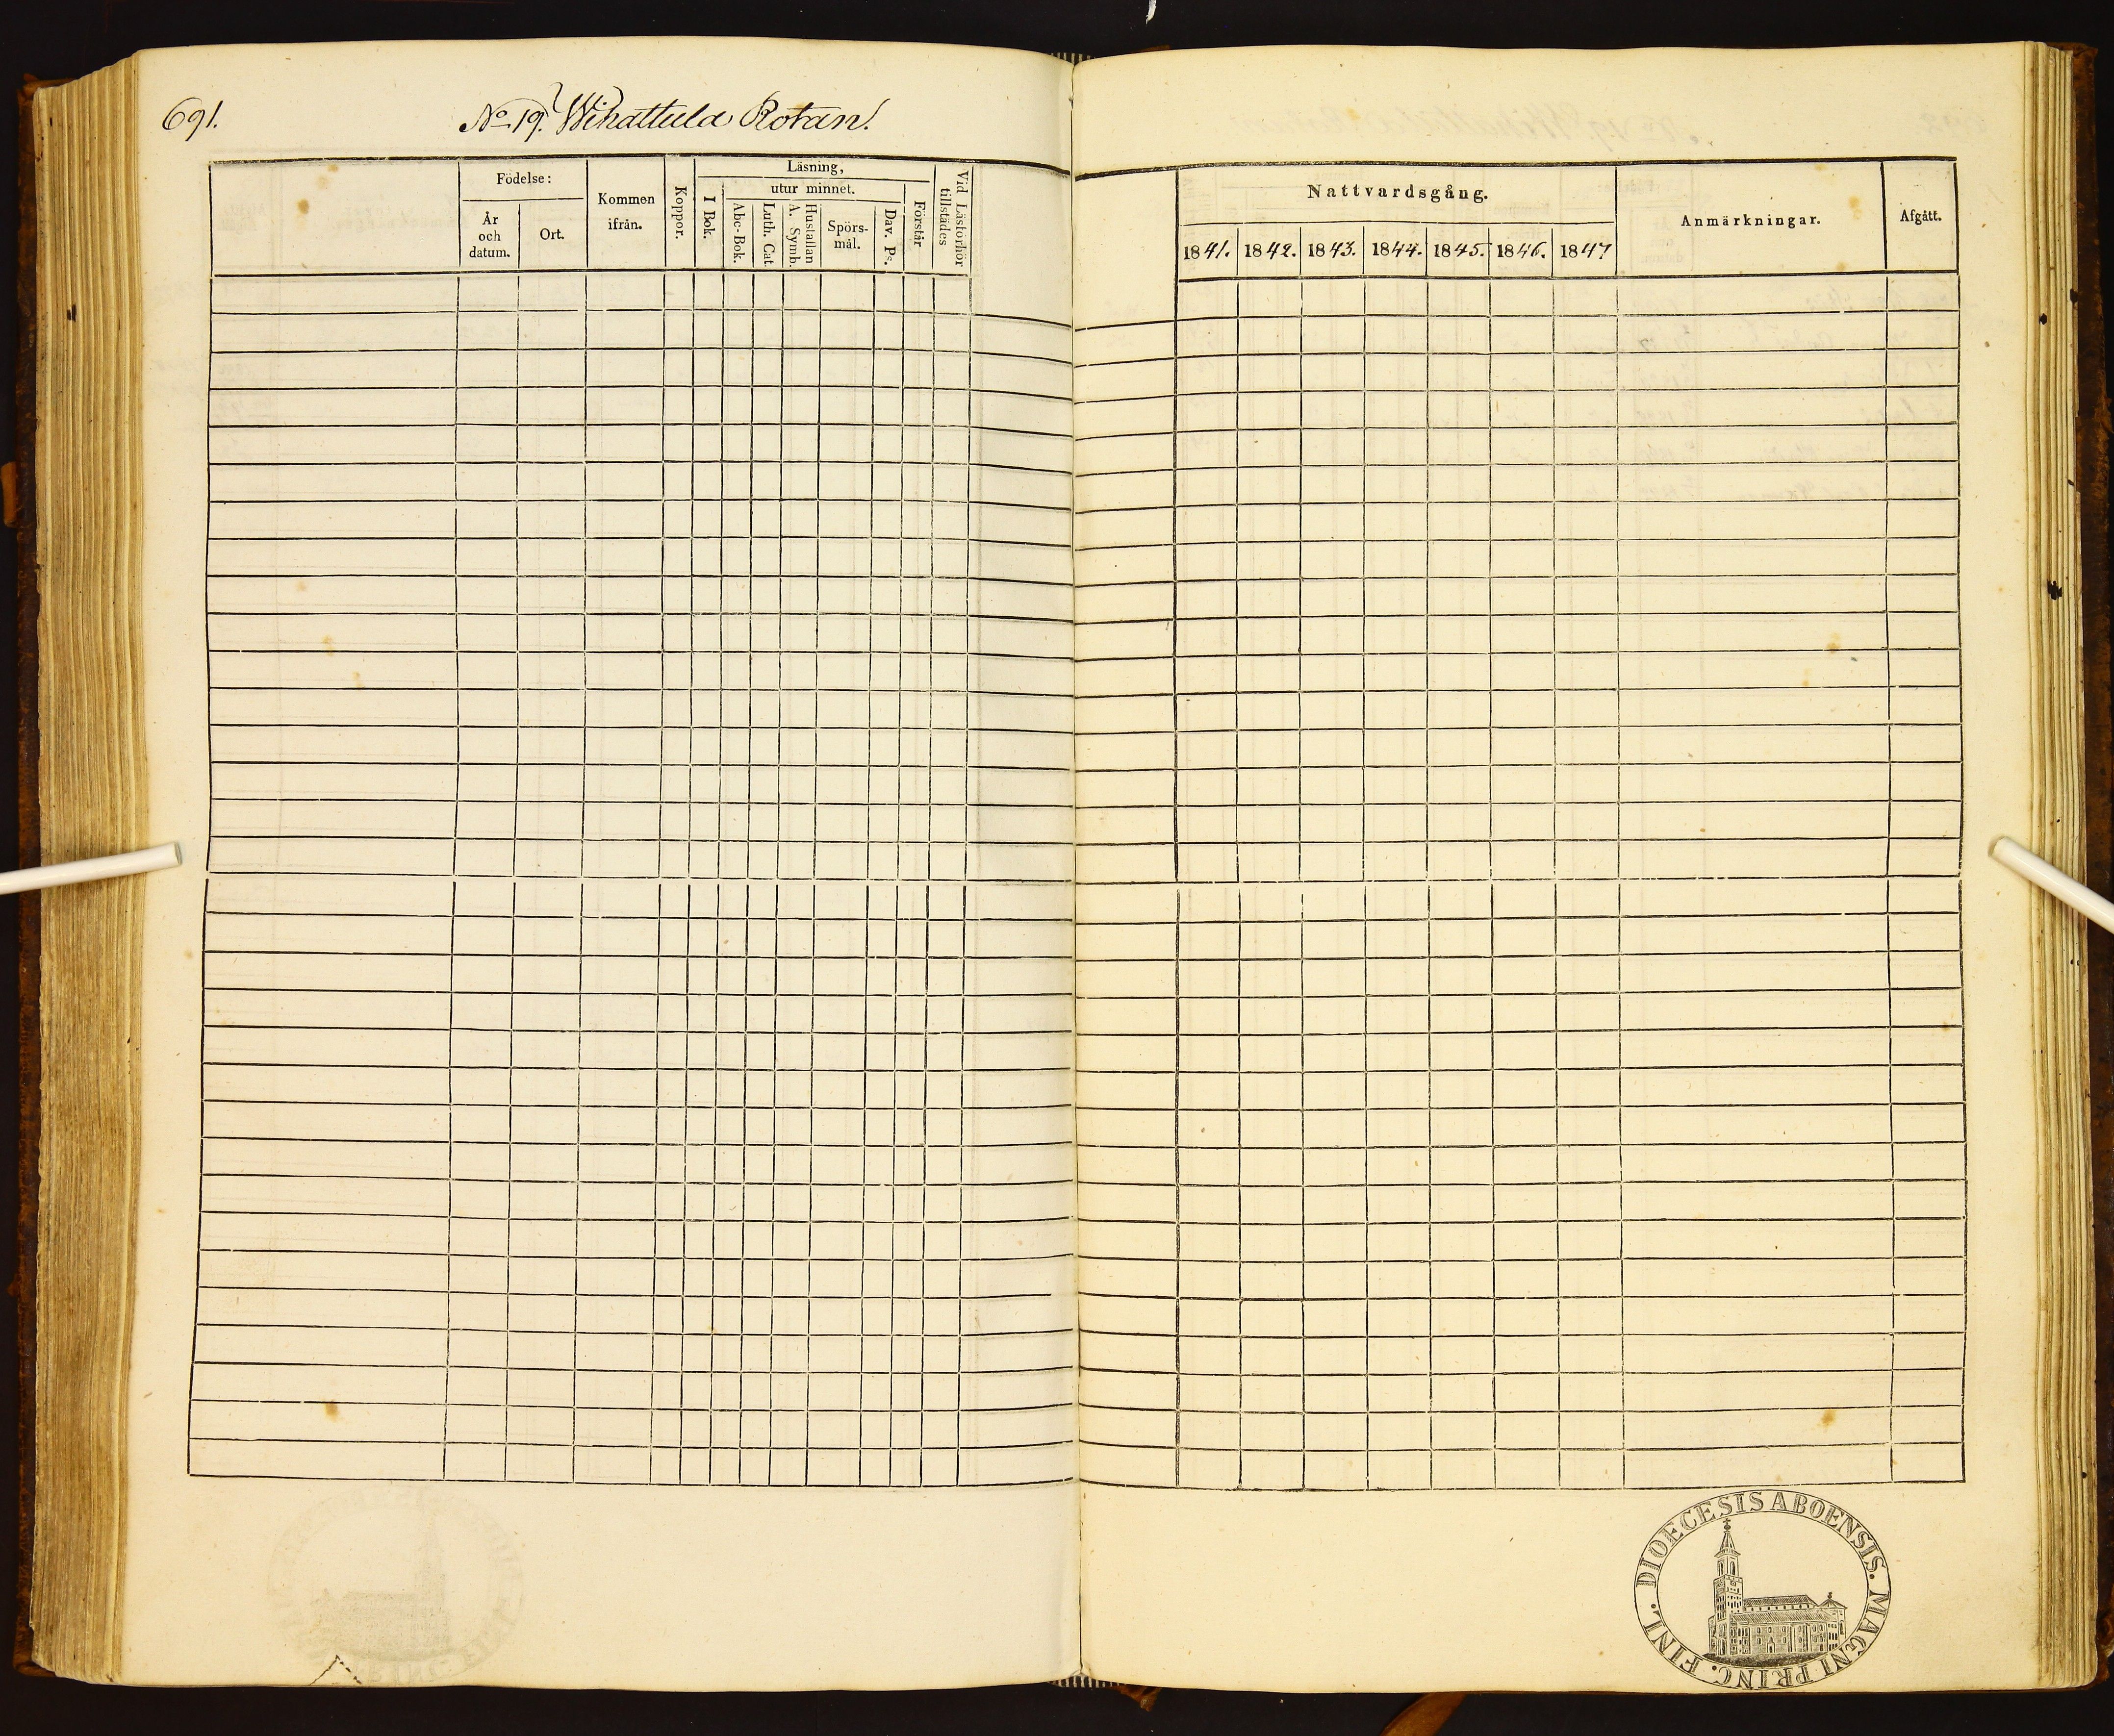 691.
No 19. Wihattula Rotan.
Födelse:
År
och
datum.
Ort.
Kommen
ifrån.
Koppor.
Läsning,
I Bok.
utur minnet.
Abc-Bok.
Luth. Cat.
Hustaflan
A. Symb.
Spörs-
mål.
Dav. Ps.
Förstår
Vid Läsförhör
tillstädes
Nattvardsgång.
1841. 1842. 1843. 1844. 1845. 1846. 1847
Anmärkningar.
Afgått.
DIOECESIS ABOENSIS. MAGNI PRINC. FINL.